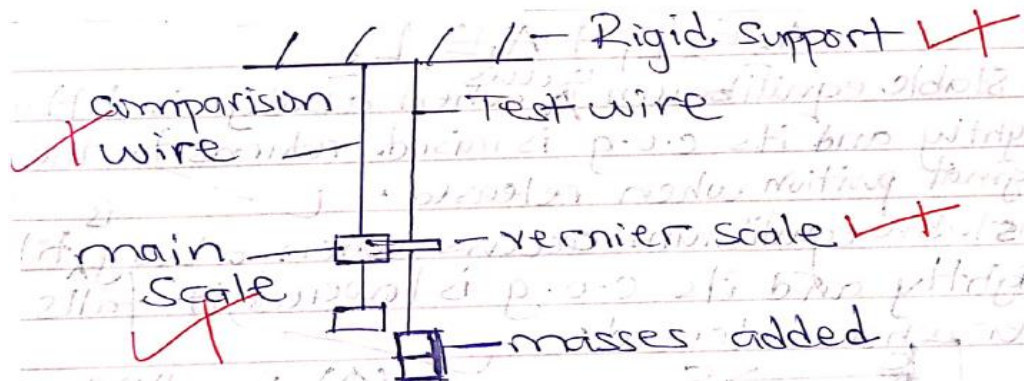 Rigid support
comparison
wire
Test wire
vernier scale
main
scale
masses added